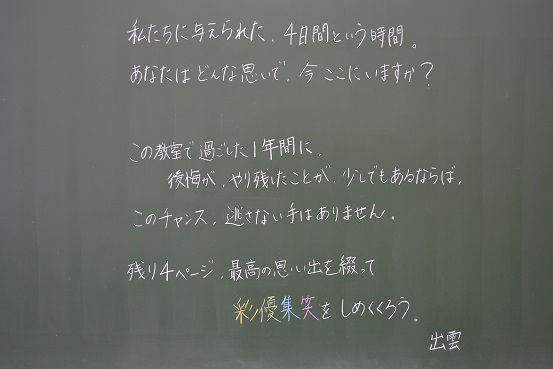 私たちに与えられた、4日間という時間。
あなたはどんな思いで、今ここにいますか?
この教室で過ごした1年間に、
後悔が、やり残したことが、少しでもあるならば、
このチャンス、逃さない手はありません。
残り4ページ、最高の思い出を綴って
彩優集笑をしめくくろう。
出雲